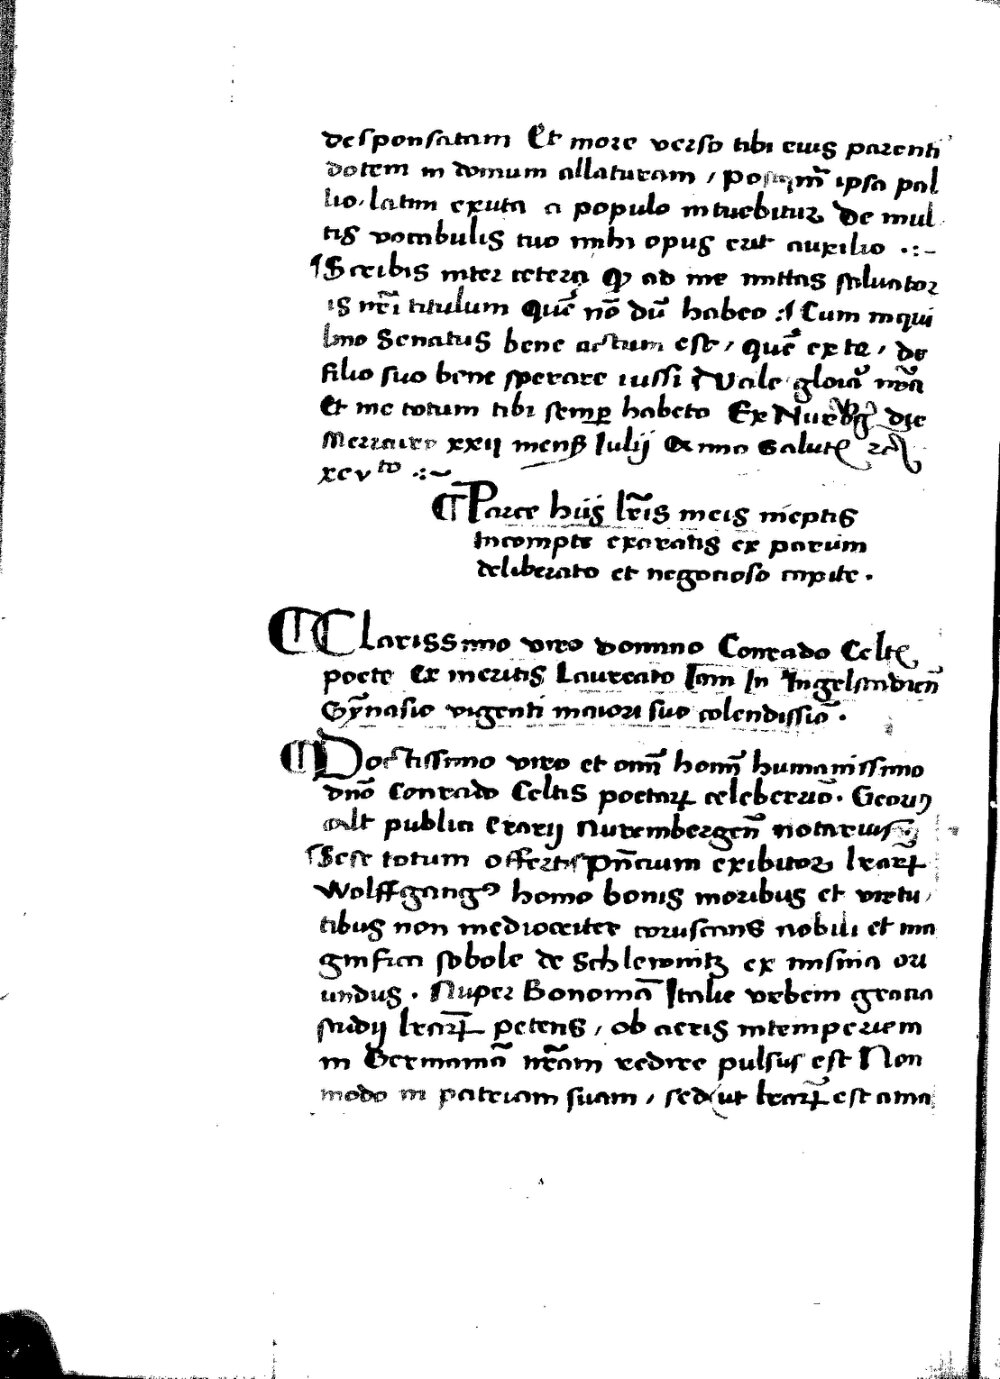 desponsatam Et more verso tibi eius parenti
dotem in domum allaturam / postqm̄ ipsa pal
lio latini exuta a populo intuebitur De mul
tis vocabulis tuo mihi opus erit auxilio .:-
¶Scribis inter cetera ꝙ ad me mittas saluator
is nr̄i titulum Quē nō dū habeo :/ Cum inqui
lino Senatus bene actum est / quē ex te / de
filio suo bene sperare iussi Vale gloīa nr̄a
Et me totum tibi semꝑ habeto Ex Nurēbḡ die
Mercurii xxii mensis Iulij Anno Salutꝭ
xcvto .:~
¶Parce hijs lr̄is meis ineptis
Incompte exaratis ex parum
deliberato et negocioso capite .
¶Clarissimo viro domino Conrado Celtꝭ
poete ex meritis Laureato Iam In Ingelstadien̄
Gȳnasio vigenti maiori suo colendissiō .
¶Doctissimo viro et om̄i hom̄ humanissimo
dn̄o Conrado Celtis poetaꝝ celeberriō . Georiꝰ
alt publici Erarij Nurembergen̄ notarius
¶Sese totum offert pn̄cium exibitor lr̄arꝝ
Wolffgangꝰ homo bonis moribus et virtu /
tibus non mediocriter coruscans nobili et ma
gnifica sobole de Schlewnitz ex misnia ori
undus . Nuper Bononiā Italie vrbem gracia
studij lr̄arꝝ petens / ob aeris intemperiem
in Germaniā nr̄am redire pulsus est Non
modo in patriam suam / sed ut lr̄arꝝ est ama